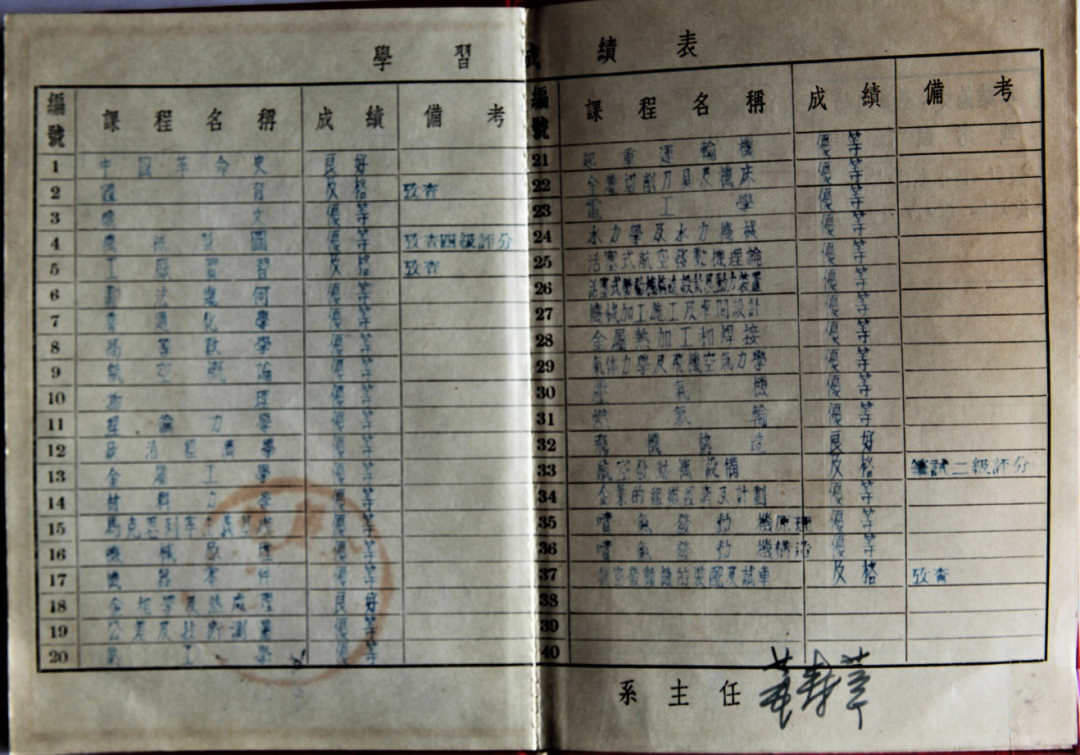 學習成績表
編號 課程名稱 成績 備考
1 中國革命史 良好
2 體育 及格 考查
3 俄文 優等
4 機械製圖 優等 考查四級評分
5 工廠實習 及格 考查
6 畫法幾何 優等
7 普通化學 優等
8 高等數學 優等
9 航空概論 優等
10 物理 優等
11 理論力學 優等
12 政治經濟學 優等
13 金屬工學 優等
14 材料力學 優等
15 馬克思列寧主義 優等
16 機械原理 優等
17 機器零件 優等
18 金相學及熱處理 良好
19 公差及技術測量 優等
20 熱工學 優等
編號 課程名稱 成績 備考
21 起重運輸機 優等
22 金屬切削刀具及機床 優等
23 電工學 優等
24 水力學及水力機械 優等
25 活塞式航空發動機理論 優等
26 活塞式發動機構造設計及動力裝置 優等
27 機械加工施工及車間設計 優等
28 金屬熱加工和焊接 優等
29 氣体力學及飛機空氣力學 優等
30 壓氣機 優等
31 燃氣輪 優等
32 飛機構造 良好
33 航空發動機設備 及格 筆試二級評分
34 企業的組織經濟及計劃 優等
35 噴氣發動機原理 優等
36 噴氣發動機構造 優等
37 航空發動機的裝配及試車 及格 考查
38
39
40
系主任